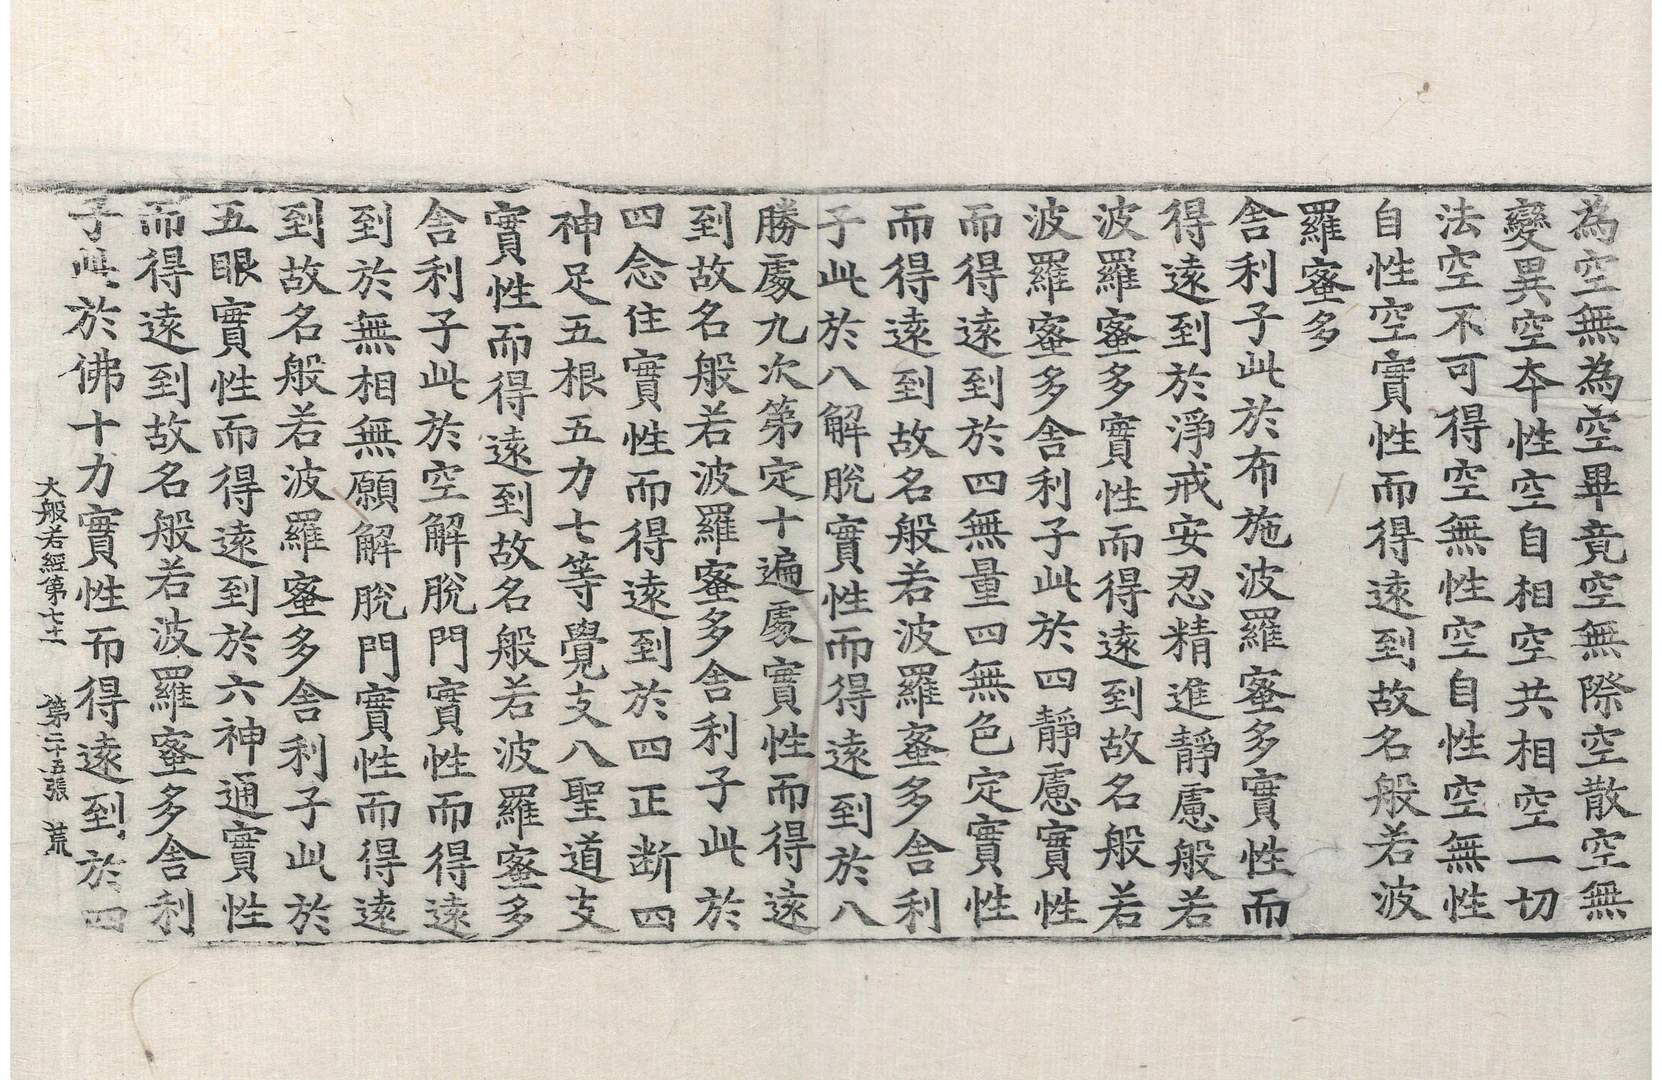 為空無為空畢竟空無際空散空無
變異空本性空自相空共相空一切
法空不可得空無性空自性空無性
自性空實性而得遠到故名般若波
羅蜜多
舍利子此於布施波羅蜜多實性而
得遠到於淨戒安忍精進靜慮般若
波羅蜜多實性而得遠到故名般若
波羅蜜多舍利子此於四靜慮實性
而得遠到於四無量四無色定實性
而得遠到故名般若波羅蜜多舍利
子此於八解脫實性而得遠到於八
勝處九次第定十遍處實性而得遠
到故名般若波羅蜜多舍利子此於
四念住實性而得遠到於四正断四
神足五根五力七等覺支八聖道支
實性而得遠到故名般若波羅蜜多
舍利子此於空解脫門實性而得遠
到於無相無願解脫門實性而得遠
到故名般若波羅蜜多舍利子此於
五眼實性而得遠到於六神通實性
而得遠到故名般若波羅蜜多舍利
子此於佛十力實性而得遠到於四
大般若經第七十一 第二十五張 荒